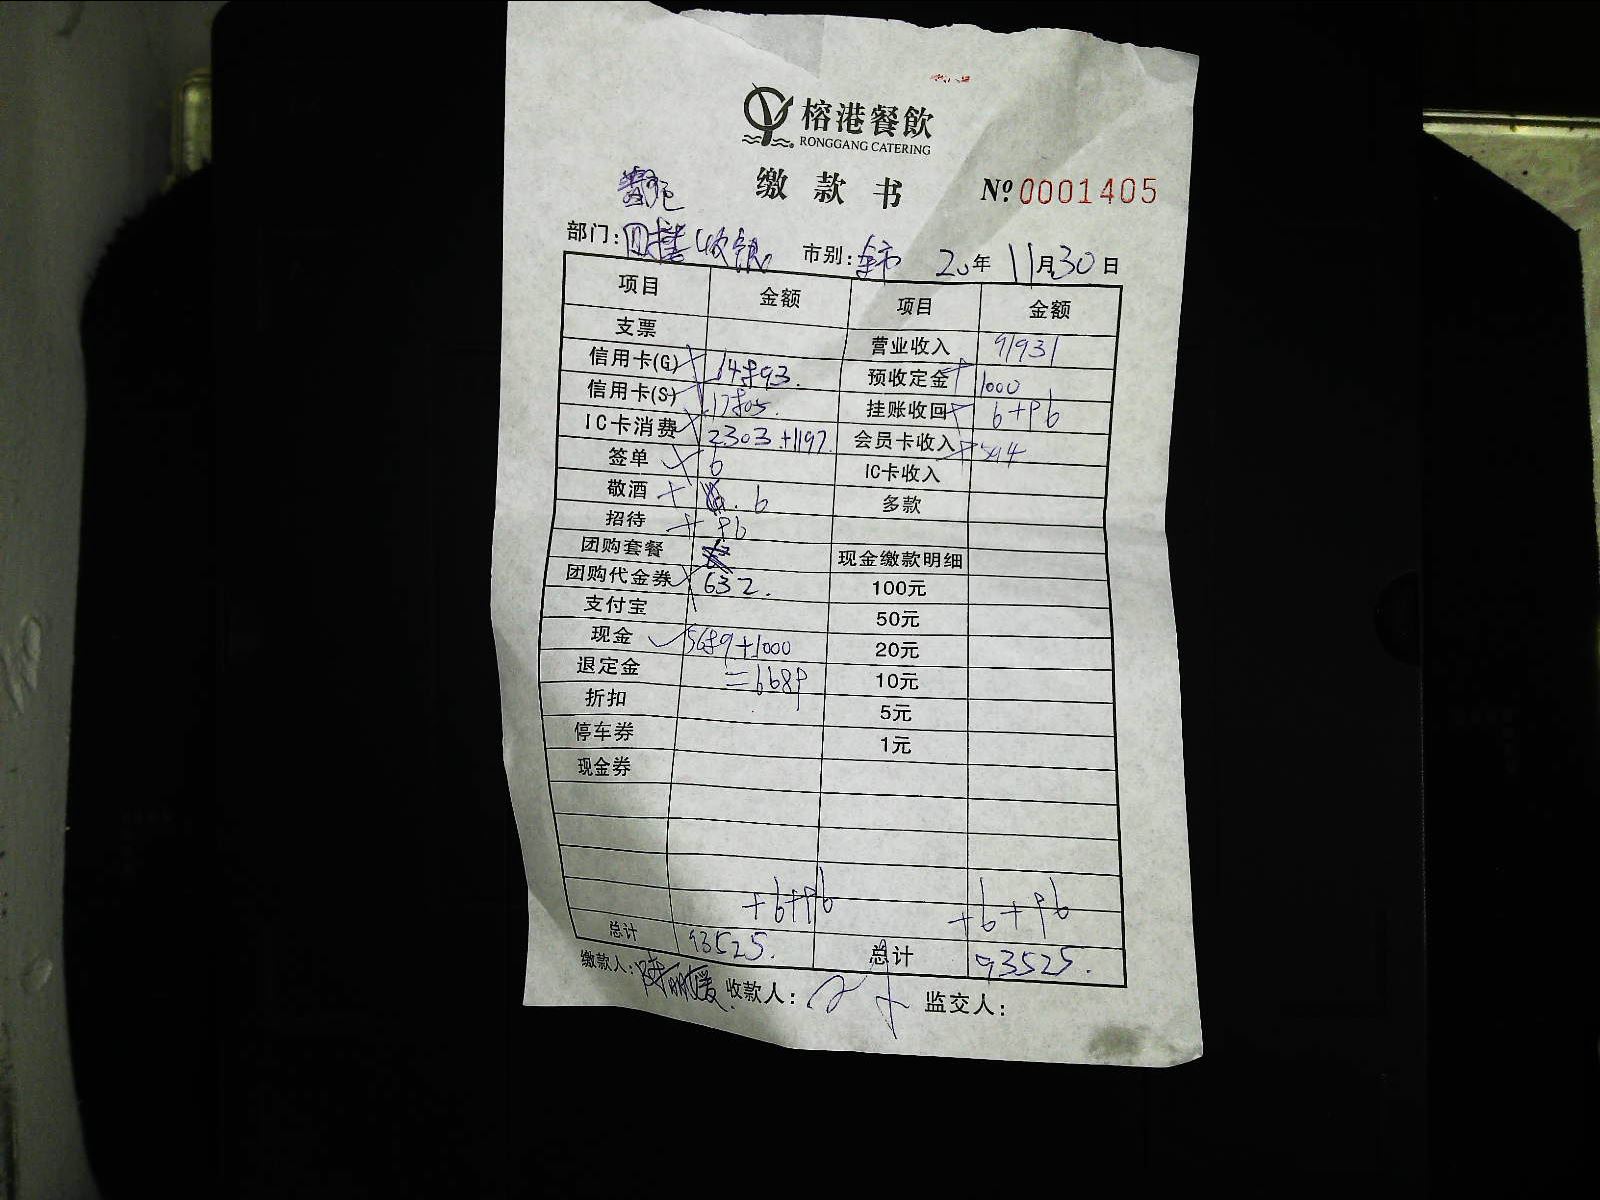 榕港餐飲
RONGGANG CATERING
缴款书 № 0001405
部门: 收银 市别: 全市 20年 11月30日
项目 金额 项目 金额
支票 营业收入 91931
信用卡(G) 14893. 预收定金 1000
信用卡(S) 17805. 挂账收回 6+96
IC卡消费 2303+1197 会员卡收入
签单 6 IC卡收入
敬酒 6 多款
招待 96
团购套餐 现金缴款明细
团购代金券 632. 100元
支付宝 50元
现金 5689+1000 20元
退定金 =6689 10元
折扣 5元
停车券 1元
现金券
+6+96 +6+96
总计 93525. 总计 93525.
缴款人: 收款人: 监交人: